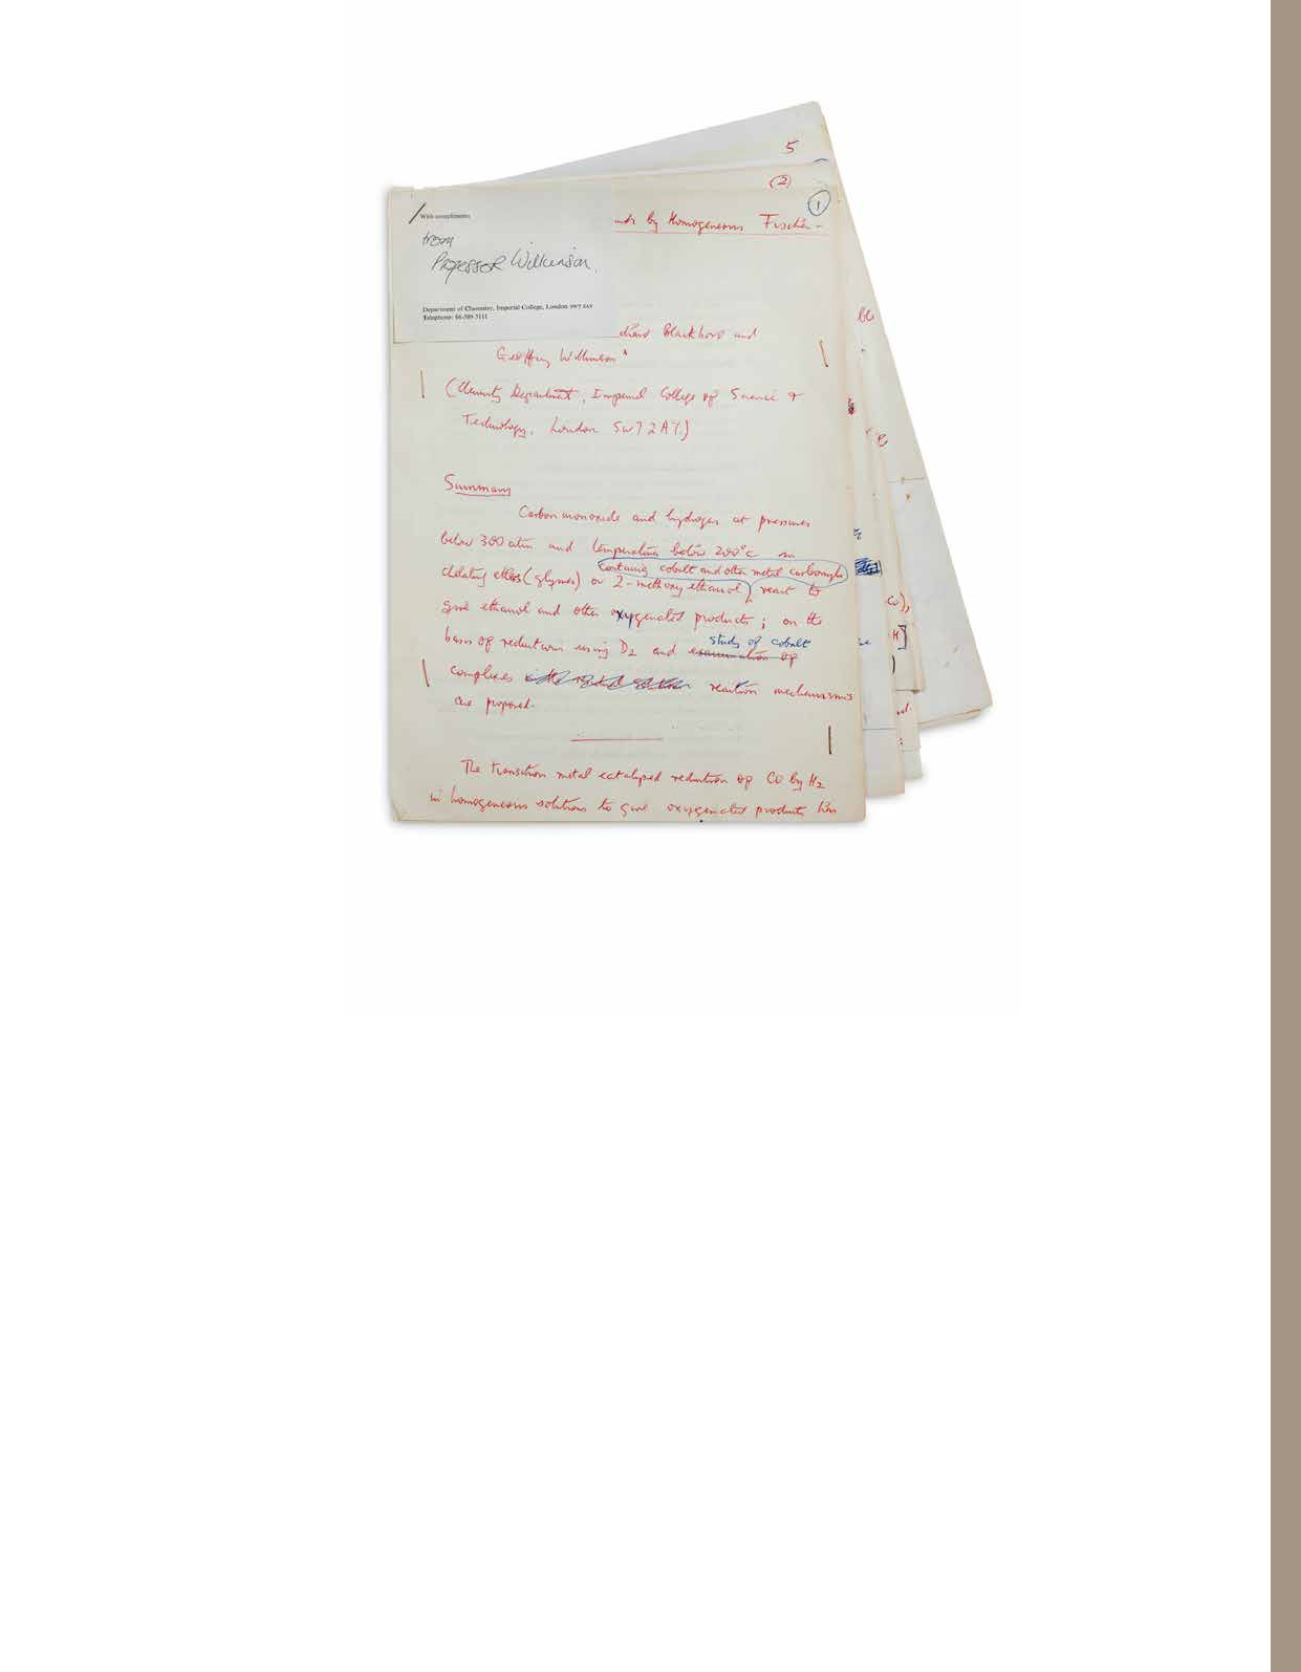 5
(2)
1
With compliments
from
Professor Wilkinson.
Department of Chemistry, Imperial College, London SW7 2AY
Telephone: 01-589 5111
by Homogeneous Fischer-
Blackborow and
Geoffrey Wilkinson*
(Chemistry Department, Imperial College of Science &
Technology, London SW7 2AY.)
Summary
Carbon monoxide and hydrogen at pressures
below 300 atm and temperatures below 200°C in
containing cobalt and other metal carbonyls
chelating ethers (glymes) or 2-methoxy ethanol react to
give ethanol and other oxygenated products; on the
study of cobalt
basis of reductions using D2 and examination of
complexes reaction mechanisms
are proposed.
The transition metal catalysed reduction of CO by H2
in homogeneous solutions to give oxygenated products has